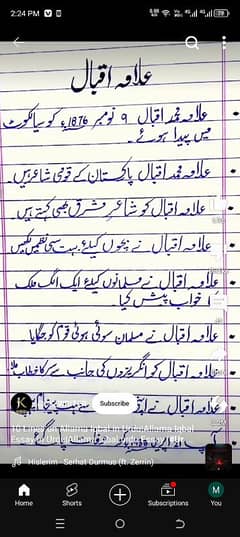 2:24 PM
علامہ اقبال
علامہ محمد اقبال ۹ نومبر 1876ء کو سیالکوٹ
میں پیدا ہوئے۔
علامہ محمد اقبال پاکستان کے قومی شاعر ہیں۔
علامہ اقبال کو شاعر مشرق بھی کہتے ہیں۔
علامہ اقبال نے بچوں کیلئے بہت سی نظمیں لکھیں
علامہ اقبال نے مسلمانوں کیلئے ایک الگ ملک
خواب پیش کیا
علامہ اقبال نے مسلمان سوئی ہوئی قوم کو جگایا۔
علامہ اقبال کو انگریزوں کی جانب سے سر کا خطاب ملا
علامہ اقبال نے
K
Subscribe
10 Lines on Allama Iqbal in Urdu/Allama Iqbal
Essay in Urdu/Allama Iqbal
Hislerim - Serhat Durmus (ft. Zerrin)
Home
Shorts
Subscriptions
M
You